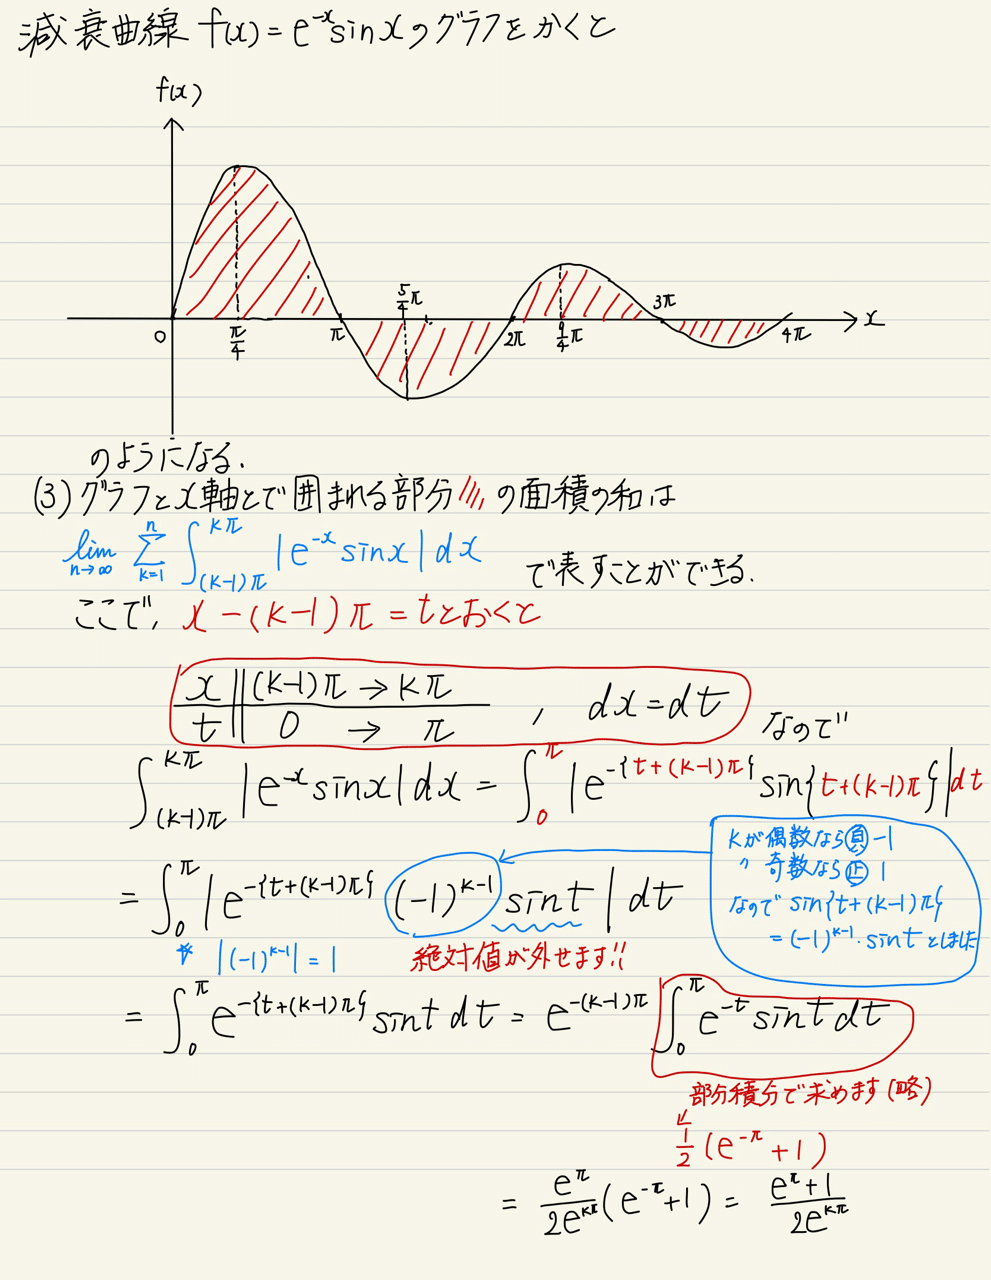 減衰曲線 f(x) = e^{-x} sinx のグラフをかくと
f(x)
0 π/4 π 5/4π 2π 9/4π 3π 4π x
のようになる.
(3) グラフとx軸とで囲まれる部分 の面積の和は
lim_{n→∞} Σ_{k=1}^{n} ∫_{(k-1)π}^{kπ} |e^{-x} sinx| dx で表すことができる.
ここで, x-(k-1)π = t とおくと
x || (k-1)π → kπ
t || 0 → π , dx = dt なので
∫_{(k-1)π}^{kπ} |e^{-x} sinx| dx = ∫_{0}^{π} |e^{-{t+(k-1)π}} sin{t+(k-1)π}| dt
kが偶数なら負 -1
〃 奇数なら正 1
なので sin{t+(k-1)π}
= (-1)^{k-1}・sint としました
= ∫_{0}^{π} |e^{-{t+(k-1)π}} (-1)^{k-1} sint| dt
* |(-1)^{k-1}| = 1 絶対値が外せます!!
= ∫_{0}^{π} e^{-{t+(k-1)π}} sint dt = e^{-(k-1)π} ∫_{0}^{π} e^{-t} sint dt
部分積分で求めます(略)
1/2 (e^{-π} + 1)
= e^{π}/2e^{kπ} (e^{-π}+1) = e^{π}+1/2e^{kπ}